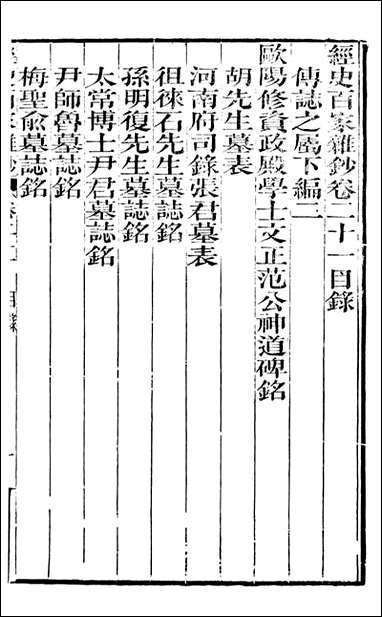 經史百家雜鈔卷二十一目錄
傳誌之屬下編二
歐陽修資政殿學士文正范公神道碑銘
胡先生墓表
河南府司錄張君墓表
徂徠石先生墓誌銘
孫明復先生墓誌銘
太常博士尹君墓誌銘
尹師魯墓誌銘
梅聖俞墓誌銘